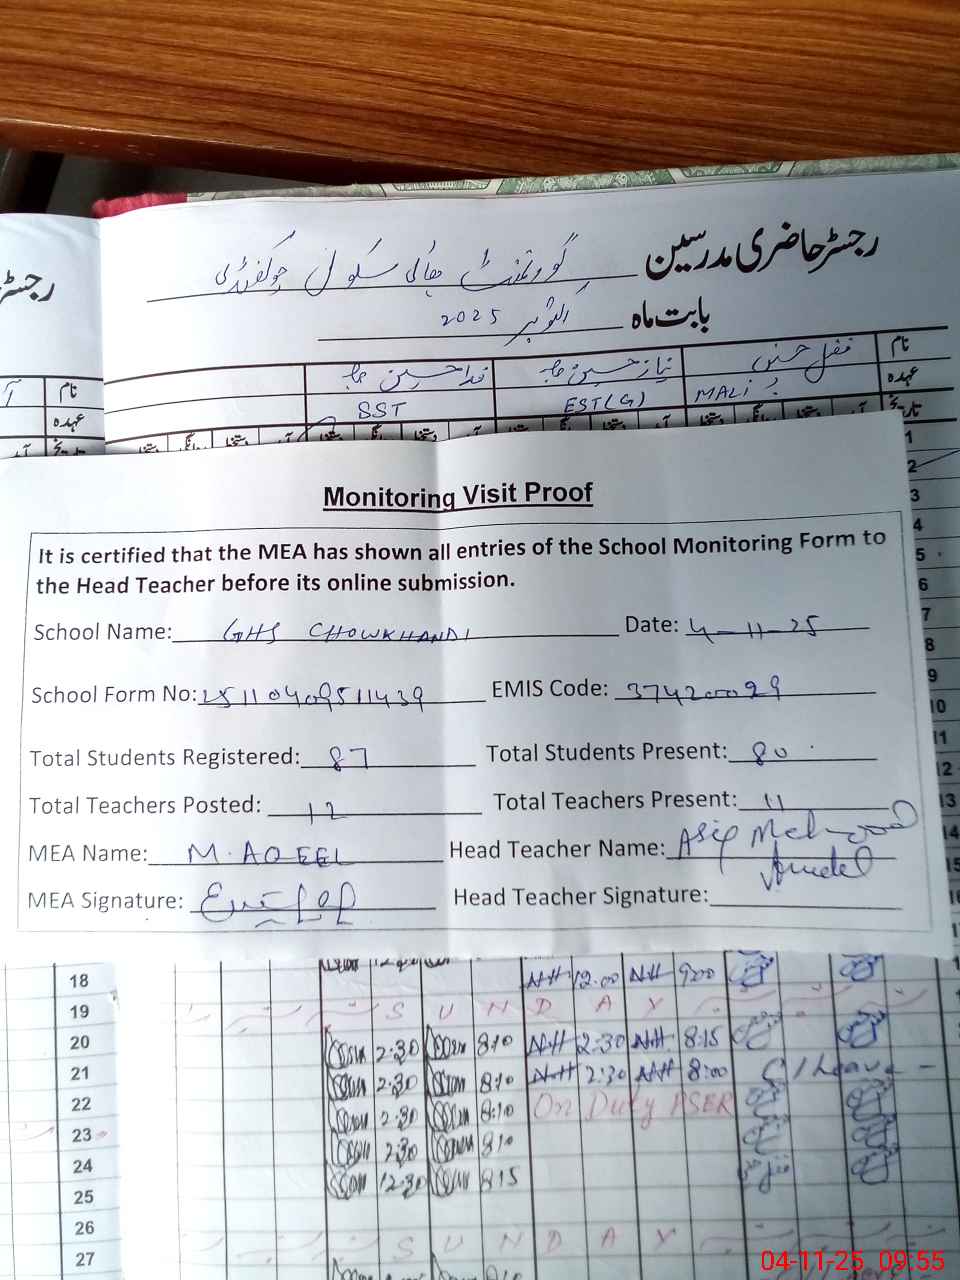 رجسٹر حاضری مدرسین گورنمنٹ ہائی سکول چوکھنڈی
بابت ماہ اکتوبر 2025
نام فضل حسین نیاز حسین فدا حسین
عہدہ MALi EST(G) SST
نام
عہدہ
تاریخ
1
2
3
4
5
6
7
8
9
10
11
12
13
14
15
Monitoring Visit Proof
It is certified that the MEA has shown all entries of the School Monitoring Form to
the Head Teacher before its online submission.
School Name: GHS CHOWKHANDI Date: 4-11-25
School Form No: 25110409511439 EMIS Code: 37420029
Total Students Registered: 87 Total Students Present: 80
Total Teachers Posted: 12 Total Teachers Present: 11
MEA Name: M. AQEEL Head Teacher Name: Asif Mehmood
MEA Signature: Head Teacher Signature:
18 NH 12.00 NH 9:00
19 S U N D A Y
20 2:30 8:10 NH 2:30 NH 8:15
21 2:30 8:10 NH 2:30 NH 8:00 C/Leave
22 2:30 8:10 On Duty PSER
23 2:30 8:10
24 12:30 8:15
25
26 S U N D A Y
27
04-11-25 09:55